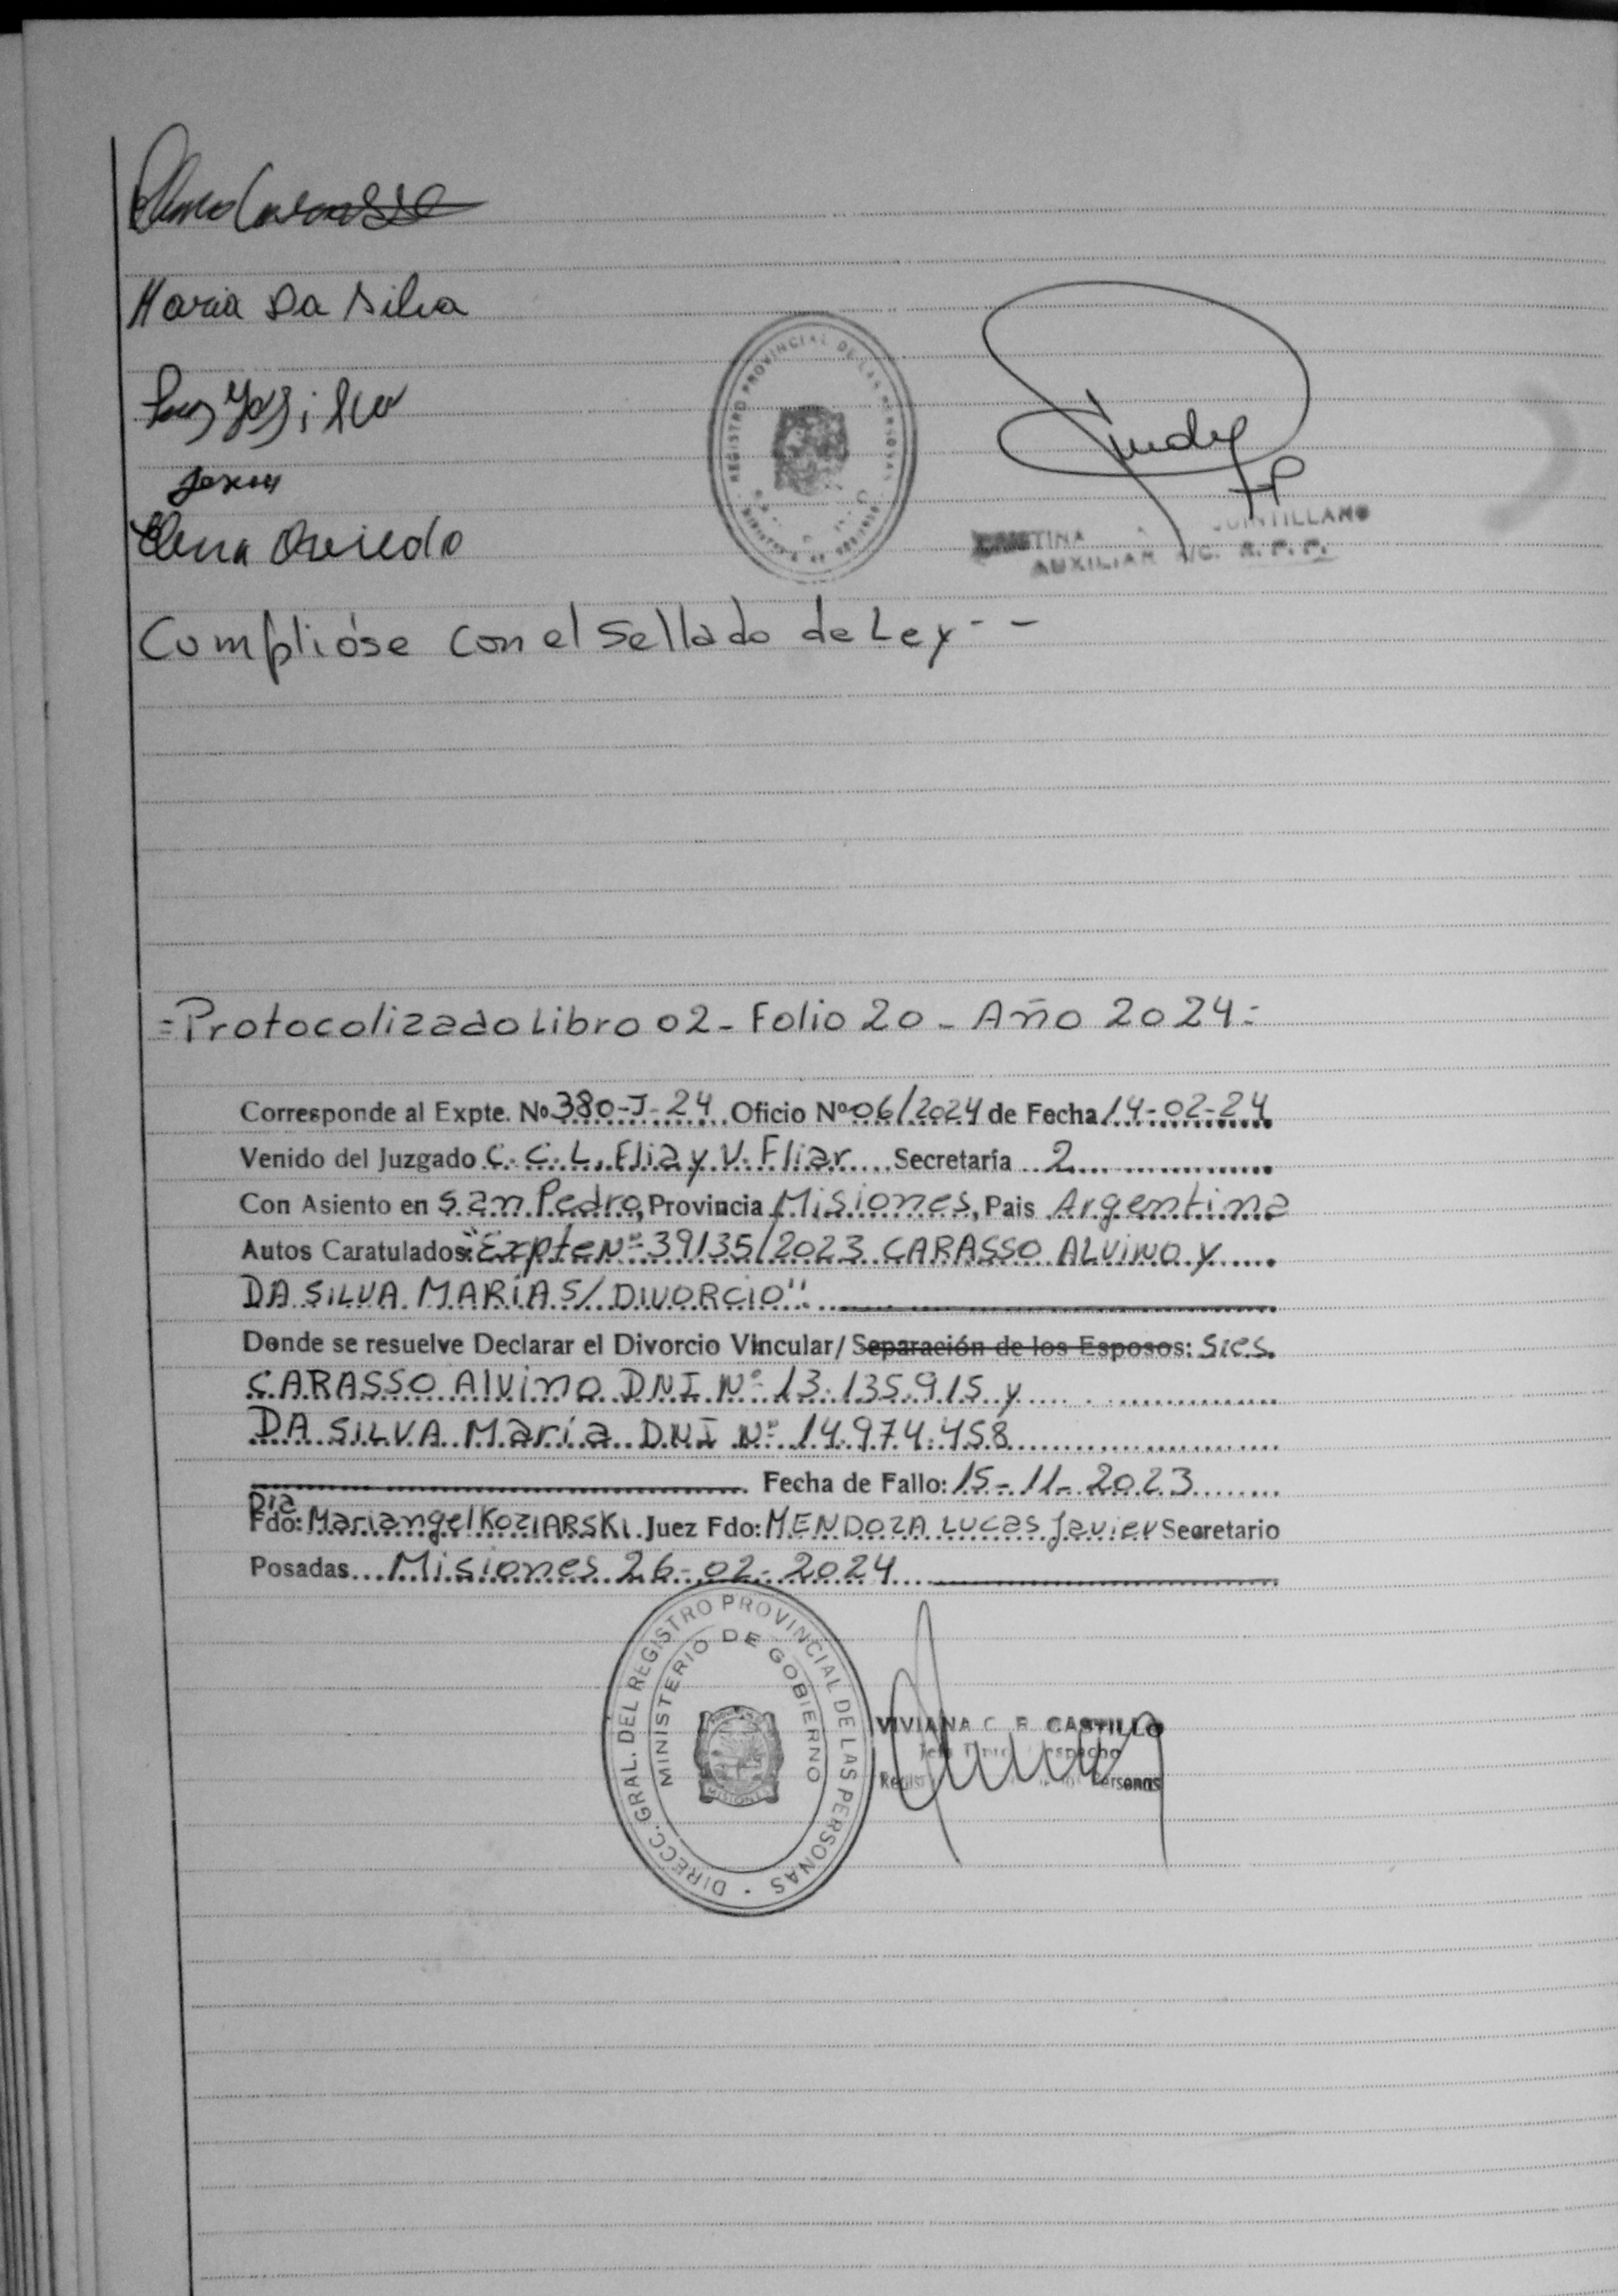 Maria Da Silva
Elena Oviedo
REGISTRO PROVINCIAL DE LAS PERSONAS
QUINTILLANO
AUXILIAR A/C. R. P. P.
Cumplióse con el Sellado de Ley - -
=Protocolizado Libro 02- Folio 20- Año 2024=
Corresponde al Expte. No 380-J-24 Oficio Nº 06/2024 de Fecha 14-02-24
Venido del Juzgado C. C. L. Flia y V. Fliar Secretaría 2
Con Asiento en San Pedro, Provincia Misiones, Pais Argentina
Autos Caratulados: "Expte Nº 39135/2023 CARASSO ALVINO y
DA SILVA MARÍA S/ DIVORCIO"
Donde se resuelve Declarar el Divorcio Vincular/ Separación de los Esposos: Sres.
CARASSO Alvino DNI Nº 13.135.915 y
DA SILVA María DNI Nº 14.974.458
Fecha de Fallo: 15-11-2023
Dra
Fdo: Mariangel KOZIARSKI Juez Fdo: MENDOZA LUCAS Javier Secretario
Posadas Misiones 26-02-2024
DIRECC. GRAL. DEL REGISTRO PROVINCIAL DE LAS PERSONAS
MINISTERIO DE GOBIERNO
MISIONES
VIVIANA C. CASTILLO
Personas